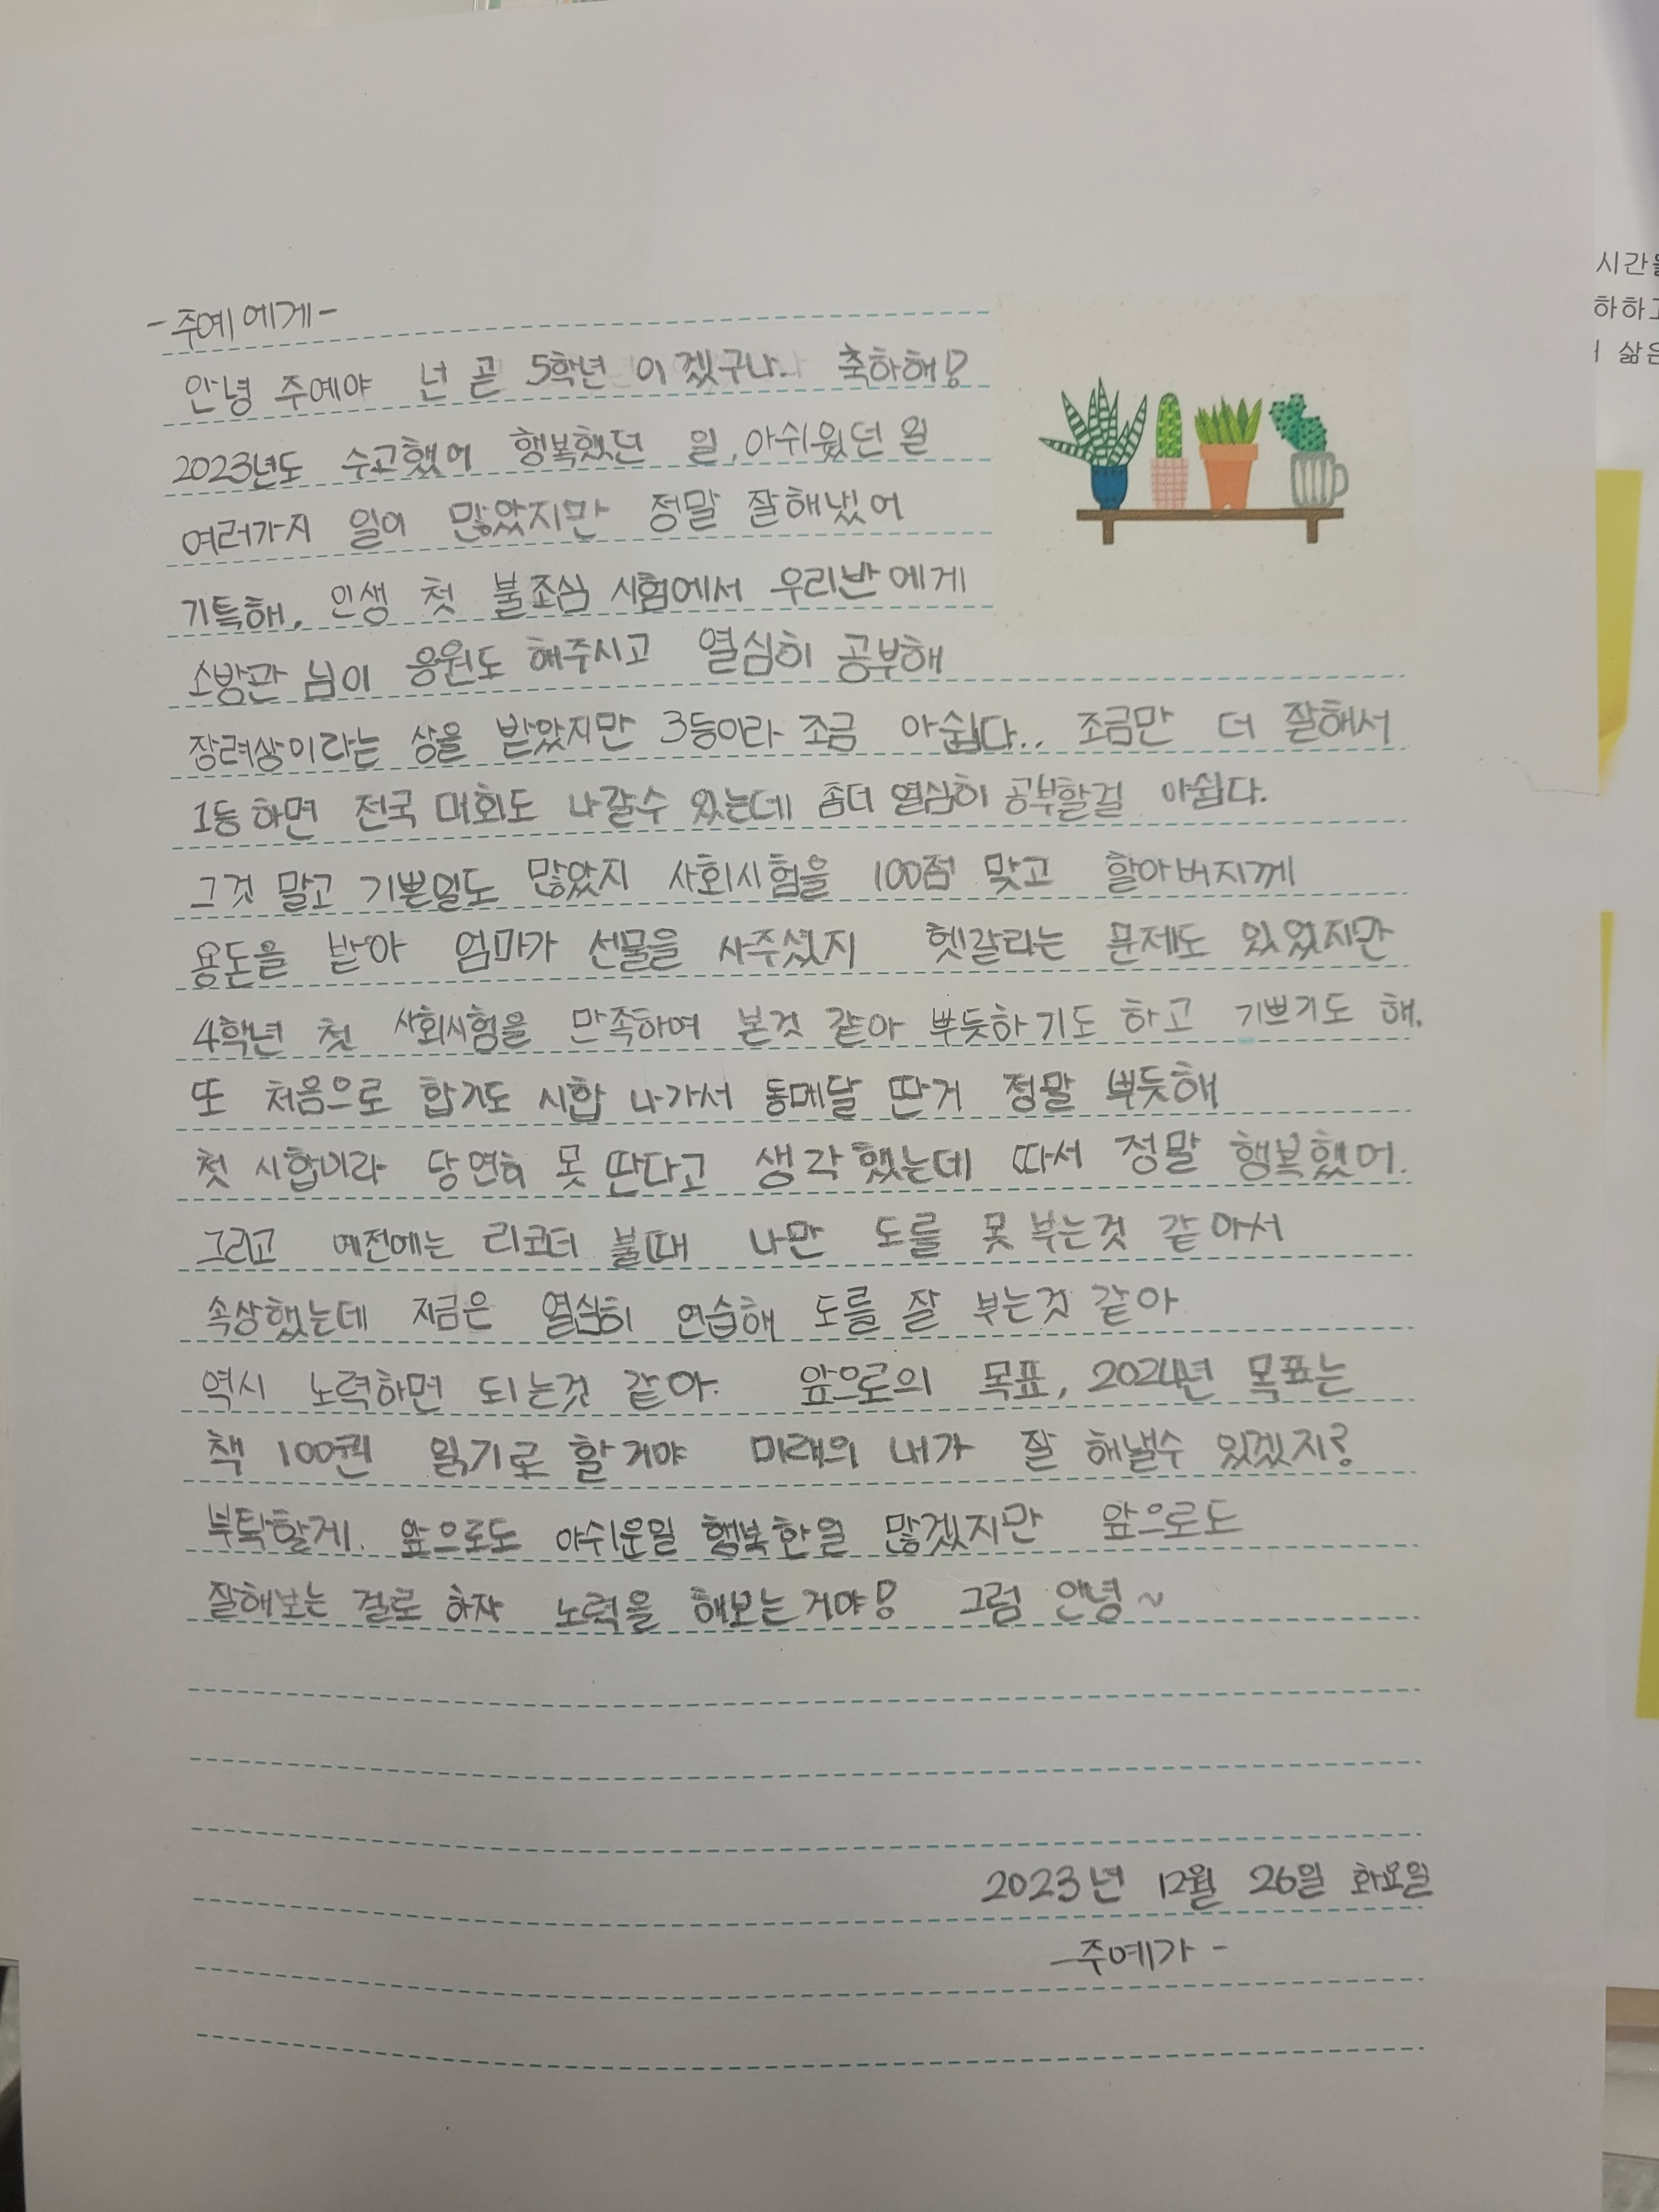 -주예에게-
안녕 주예야 넌 곧 5학년 이겠구나. 축하해!
2023년도 수고했어 행복했던 일, 아쉬웠던 일
여러가지 일이 많았지만 정말 잘해냈어
기특해, 인생 첫 불조심 시험에서 우리반에게
소방관 님이 응원도 해주시고 열심히 공부해
장려상이라는 상을 받았지만 3등이라 조금 아쉽다.. 조금만 더 잘해서
1등하면 전국 대회도 나갈수 있는데 좀더 열심히 공부할걸 아쉽다.
그것 말고 기쁜일도 많았지 사회시험을 100점 맞고 할아버지께
용돈을 받아 엄마가 선물을 사주셨지 헷갈리는 문제도 있었지만
4학년 첫 사회시험을 만족하여 본것 같아 뿌듯하기도 하고 기쁘기도 해.
또 처음으로 합기도 시합 나가서 동메달 딴거 정말 뿌듯해
첫 시합이라 당연히 못 딴다고 생각했는데 따서 정말 행복했어.
그리고 예전에는 리코더 불때 나만 도를 못 부는것 같아서
속상했는데 지금은 열심히 연습해 도를 잘 부는것 같아
역시 노력하면 되는것 같아. 앞으로의 목표, 2024년 목표는
책 100권 읽기로 할거야 미래의 내가 잘 해낼수 있겠지?
부탁할게. 앞으로도 아쉬운일 행복한일 많겠지만 앞으로도
잘해보는 걸로 하자 노력을 해보는거야! 그럼 안녕~
2023년 12월 26일 화요일
-주예가-
시간을
하하고
삶은